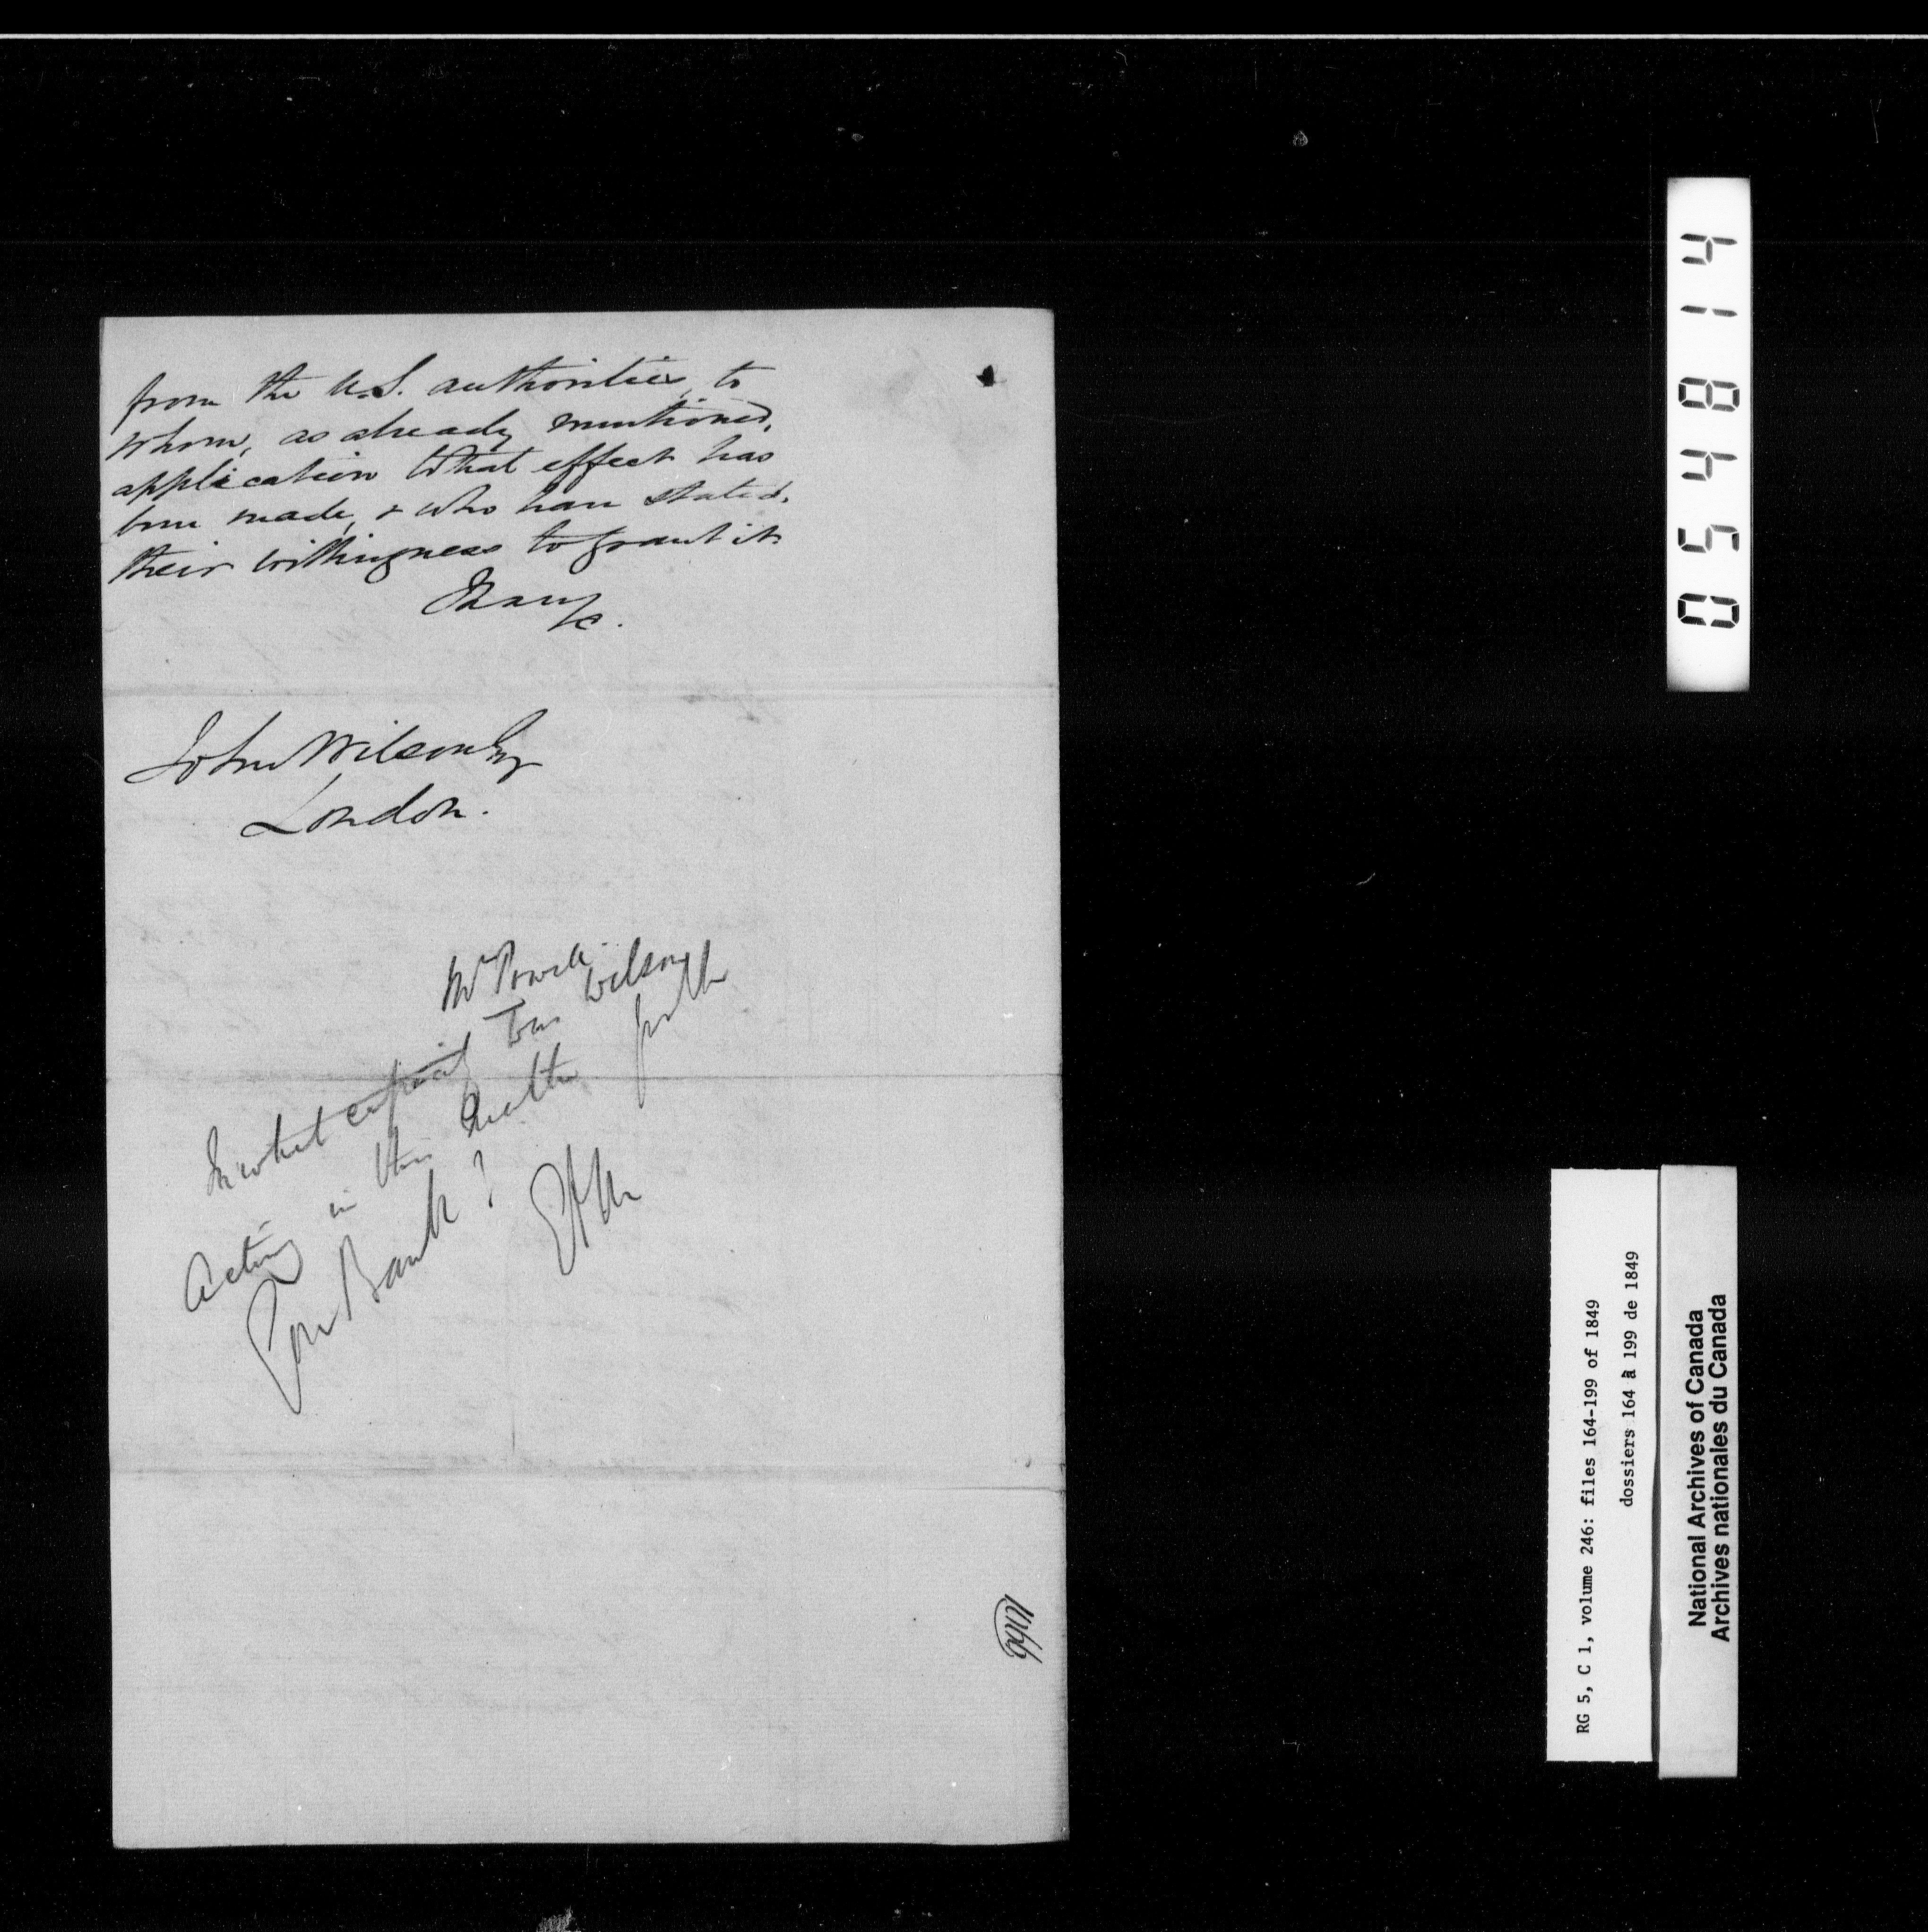 from the U.S. authorities, to
whom, as already mentioned,
application to that effect has
been made, & who have stated
their willingness to grant it.
I have &c.
John Wilson Esqr
London.
Mr Powell
In what capacity was Wilson
acting in this matter for the
Gore Bank?
054814
RG 5, C 1, volume 246: files 164-199 of 1849
dossiers 164 à 199 de 1849
National Archives of Canada
Archives nationales du Canada